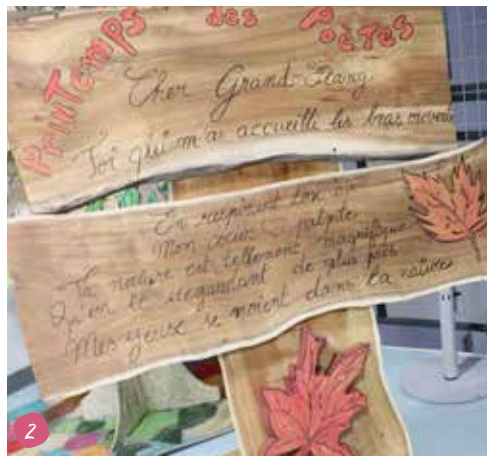 PRINTEMPS des POÈTES
Cher Grand-Étang
Toi qui m'a accueilli les bras ouverts
En respirant ton air
Mon cœur palpite
Ta nature est tellement magnifique
Qu'en te regardant de plus près
Mes yeux se noient dans ta nature
2